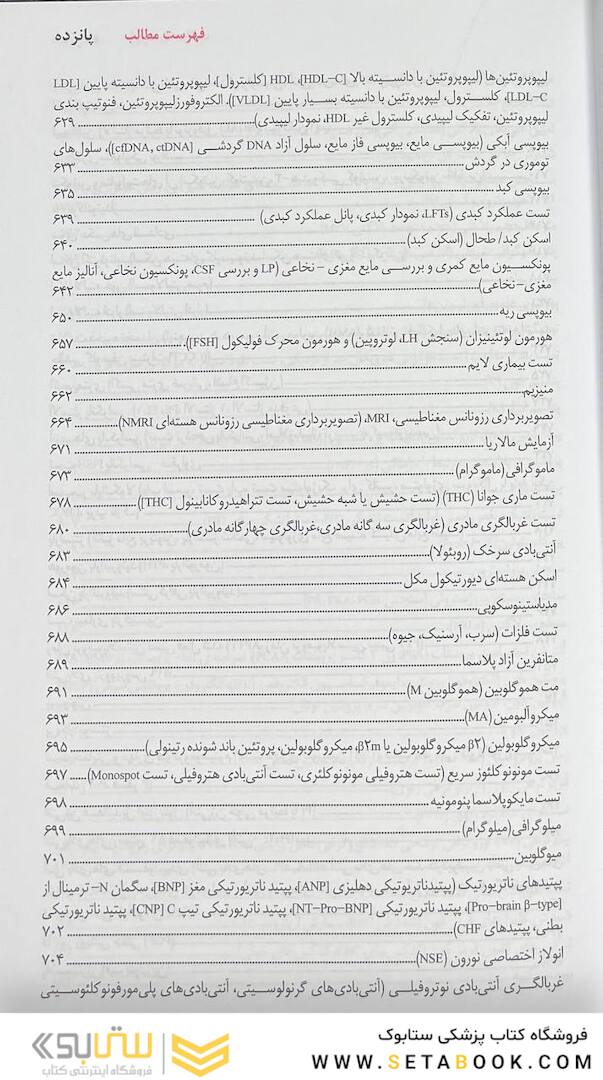 فهرست مطالب    پانزده
لیپوپروتئین‌ها (لیپوپروتئین با دانسیته بالا [HDL-C]، HDL [کلسترول]، لیپوپروتئین با دانسیته پایین [LDL
LDL-C]، کلسترول، لیپوپروتئین با دانسیته بسیار پایین [VLDL]، الکتروفورز لیپوپروتئین، فنوتیپ بندی
لیپوپروتئین، تفکیک لیپیدی، کلسترول غیر HDL، نمودار لیپیدی) ۶۲۹
بیوپسی آبکی (بیوپسی مایع، بیوپسی فاز مایع، سلول آزاد DNA گردشی [cfDNA, ctDNA])، سلول‌های
توموری در گردش ۶۳۳
بیوپسی کبد ۶۳۵
تست عملکرد کبدی (LFTs، نمودار کبدی، پانل عملکرد کبدی) ۶۳۹
اسکن کبد/ طحال (اسکن کبد) ۶۴۰
پونکسیون مایع کمری و بررسی مایع مغزی - نخاعی (LP و بررسی CSF، پونکسیون نخاعی، آنالیز مایع
مغزی-نخاعی) ۶۴۲
بیوپسی ریه ۶۵۰
هورمون لوتئینیزان (سنجش LH، لوتروپین) و هورمون محرک فولیکول [FSH]). ۶۵۷
تست بیماری لایم ۶۶۰
منیزیم ۶۶۲
تصویربرداری رزونانس مغناطیسی، MRI، (تصویربرداری مغناطیسی رزونانس هسته‌ای NMRI) ۶۶۴
آزمایش مالاریا ۶۷۱
ماموگرافی (ماموگرام) ۶۷۳
تست ماری جوانا (THC) (تست حشیش یا شبه حشیش، تست تتراهیدروکانابینول [THC]) ۶۷۸
تست غربالگری مادری (غربالگری سه گانه مادری،غربالگری چهارگانه مادری) ۶۸۰
آنتی‌بادی سرخک (روبئولا) ۶۸۳
اسکن هسته‌ای دیورتیکول مکل ۶۸۴
مدیاستینوسکوپی ۶۸۶
تست فلزات (سرب، آرسنیک، جیوه) ۶۸۸
متانفرین آزاد پلاسما ۶۸۹
مت هموگلوبین (هموگلوبین M) ۶۹۱
میکروآلبومین (MA) ۶۹۳
میکروگلوبولین (β۲ میکروگلوبولین یا β۲m، میکروگلوبولین، پروتئین باند شونده رتینولی) ۶۹۵
تست مونونوکلئوز سریع (تست هتروفیلی مونونوکلئری، تست آنتی‌بادی هتروفیلی، تست Monospot) ۶۹۷
تست مایکوپلاسما پنومونیه ۶۹۸
میلوگرافی (میلوگرام) ۶۹۹
میوگلوبین ۷۰۱
پپتیدهای ناتریورتیک (پپتیدناتریوتیکی دهلیزی [ANP]، پپتید ناتریورتیکی مغز [BNP]، سگمان N- ترمینال از
[Pro-brain β-type]، پپتید ناتریورتیکی [NT-Pro-BNP]، پپتید ناتریورتیکی تیپ C [CNP]، پپتید ناتریورتیکی
بطنی، پپتیدهای CHF) ۷۰۲
انولاز اختصاصی نورون (NSE) ۷۰۴
غربالگری آنتی‌بادی نوتروفیلی (آنتی‌بادی‌های گرنولوسیتی، آنتی‌بادی‌های پلی‌مورفونوکلئوسیتی
فروشگاه کتاب پزشکی ستابوک
WWW.SETABOOK.COM
ستابوک
فروشگاه اینترنتی کتاب